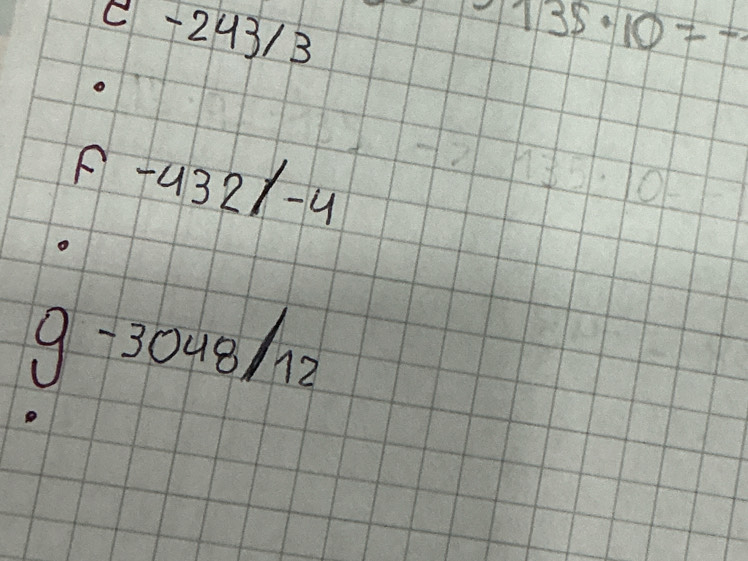 135·10=
e -243/3
f -432/-4
g -3048/12